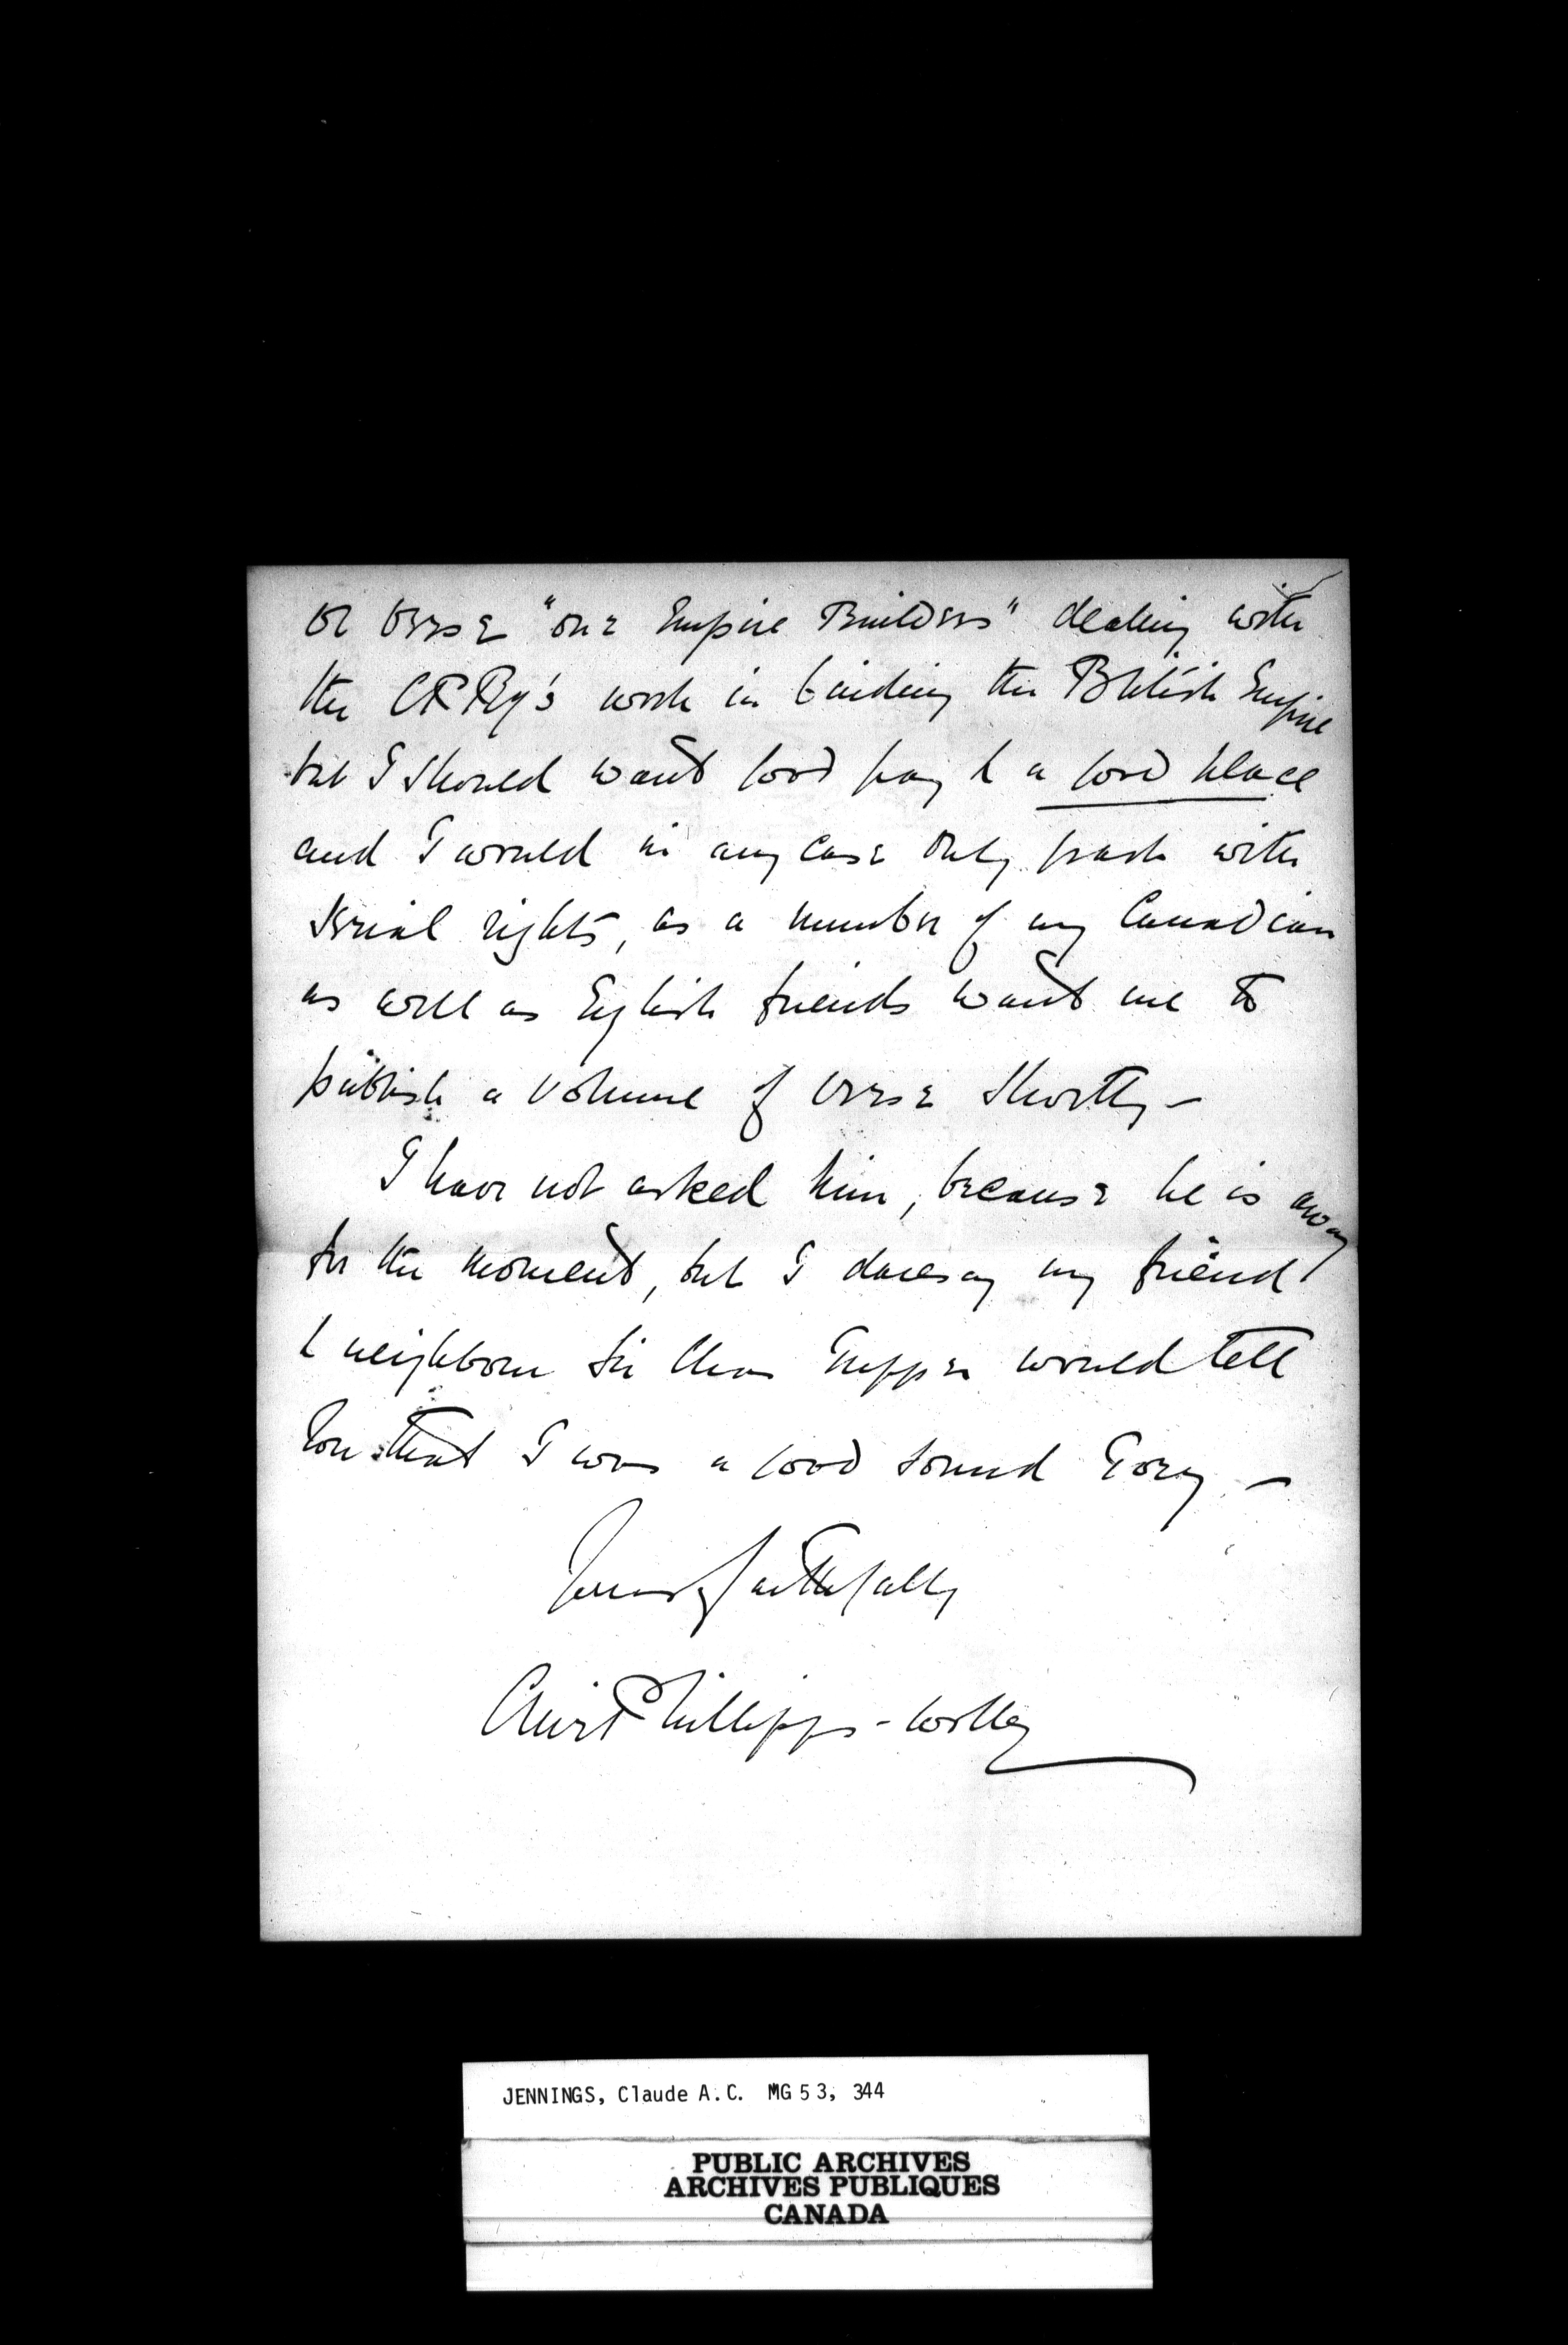 or verse "our Empire Builders" dealing with
the CPRy's work in binding the British Empire
but I should want good pay & a good place
and I would in any case only part with
serial rights, as a number of my Canadian
as well as English friends want me to
publish a volume of verse shortly -
I have not asked him, because he is away
for the moment, but I daresay my friend
& neighbour Sir Chas Tupper would tell
you that I was a good sound Tory -
Yours faithfully
Clive Phillipps-Wolley
JENNINGS, Claude A.C. MG 53, 344
PUBLIC ARCHIVES
ARCHIVES PUBLIQUES
CANADA